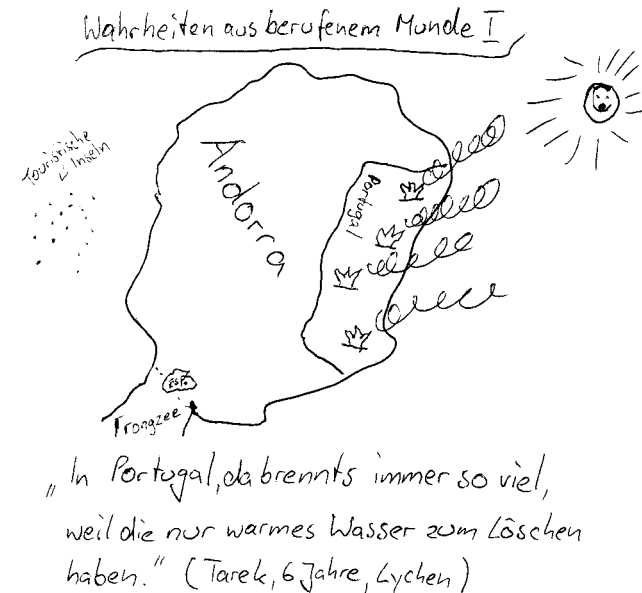 Wahrheiten aus berufenem Munde I
Touristische
Inseln
Andorra
Portugal
ESP.
Frongzee
„In Portugal, da brennts immer so viel,
weil die nur warmes Wasser zum Löschen
haben." (Tarek, 6 Jahre, Lychen)